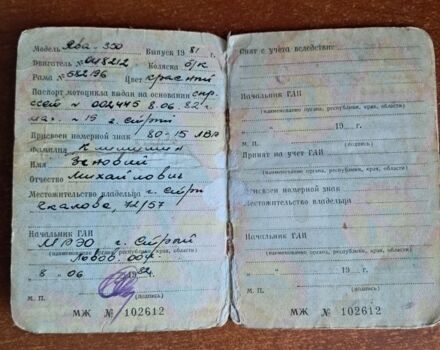 Модель Ява-350 Выпуск 1981 г.
Двигатель № 048212 Коляска б/к
Рама № 582196 Цвет красный
Паспорт мотоцикла выдан на основании спр.
счет № 002445 8.06.82 г.
маг. № 19 г. Стрый
Присвоен номерной знак 80-15 ЛВА
Фамилия
Имя
Отчество Михайлович
Местожительство владельца г. Стрый
Чкалова, 72/57
Начальник ГАИ
МРЭО г. Стрый
(наименование органа, республики, края, области)
Львов. обл
8 06 1982 г.
М. П. (подпись)
МЖ № 102612
Снят с учета вследствие
Начальник ГАИ
(наименование органа, республики, края, области)
19 г.
М. П. (подпись)
Принят на учет ГАИ
Присвоен номерной знак
Местожительство владельца
Начальник ГАИ
(наименование органа, республики, края, области)
19 г.
М. П. (подпись)
МЖ № 102612